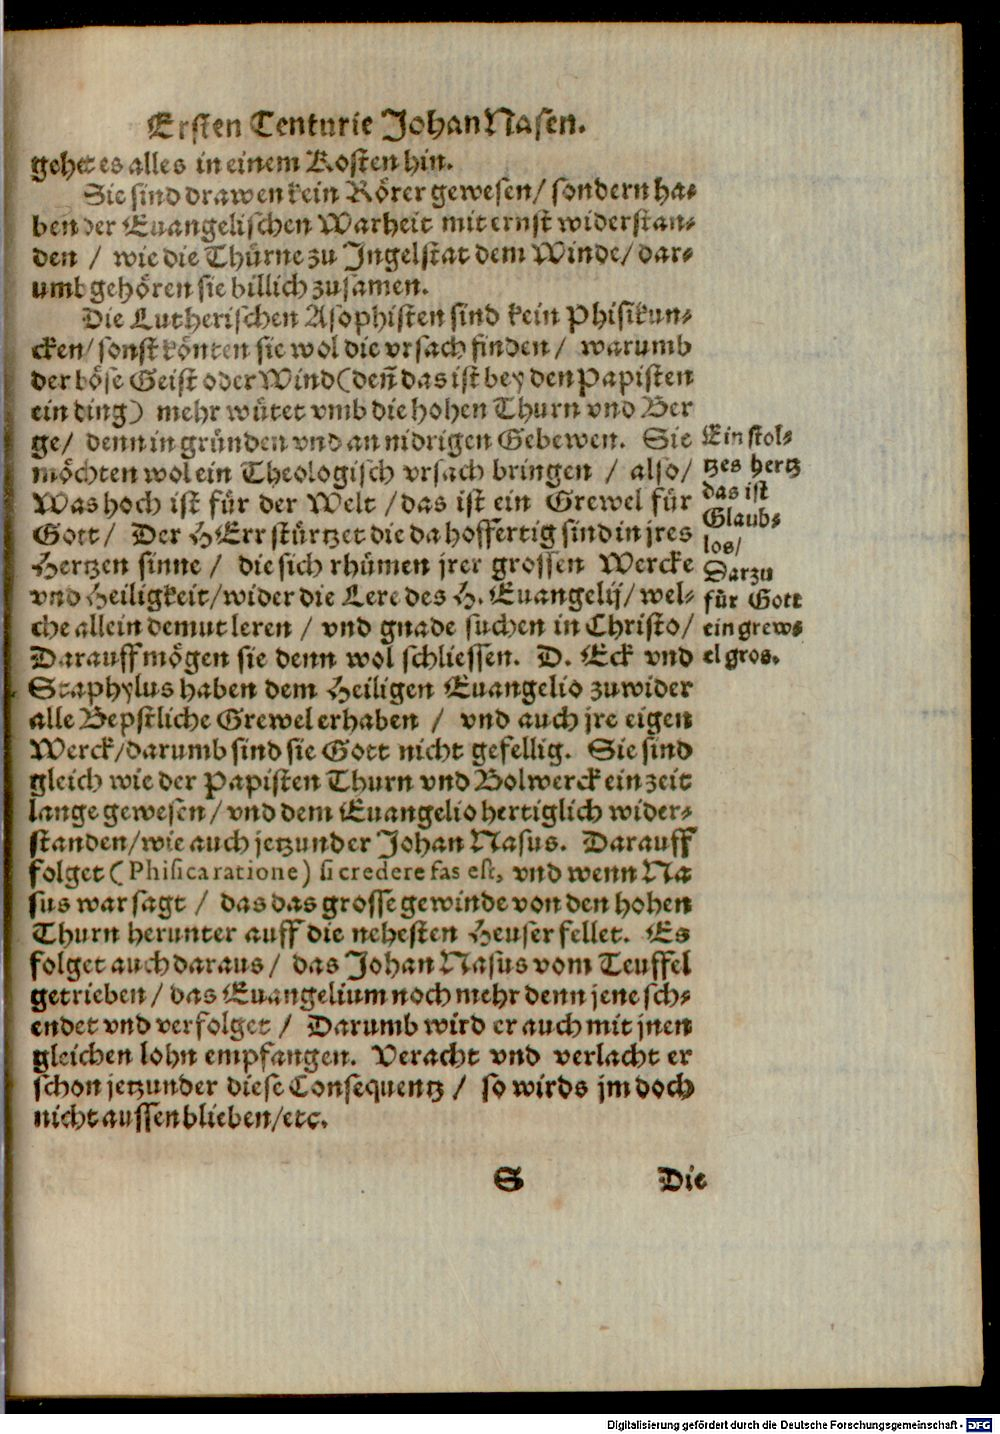 Ersten Centurie Johan Nasen.
gehet es alles in einem Kosten hin.
Sie sind drawen kein Rörer gewesen/ sondern ha-
ben der Euangelischen Warheit mit ernst widerstan-
den / wie die Thürne zu Jngelstat dem Winde/ dar-
umb gehören sie billich zusamen.
Die Lutherischen Asophisten sind kein Phisikun-
cken/ sonst könten sie wol die vrsach finden / warumb
der böse Geist oder Wind (deñ das ist bey den Papisten
ein ding) mehr wütet vmb die hohen Thurn vnd Ber
ge/ denn in gründen vnd an nidrigen Gebewen. Sie
möchten wol ein Theologisch vrsach bringen / also/
Was hoch ist für der Welt / das ist ein Grewel für
Gott / Der HErr stürtzet die da hoffertig sind in jres
Hertzen sinne / die sich rhümen jrer grossen Wercke
vnd Heiligkeit/ wider die Lere des H. Euangelij/ wel-
che allein demut leren / vnd gnade suchen in Christo/
Darauff mögen sie denn wol schliessen. D. Eck vnd
Staphylus haben dem Heiligen Euangelio zuwider
alle Bepstliche Grewel erhaben / vnd auch jre eigen
Werck/ darumb sind sie Gott nicht gefellig. Sie sind
gleich wie der Papisten Thurn vnd Bolwerck ein zeit
lange gewesen/ vnd dem Euangelio hertiglich wider-
standen/ wie auch jetzunder Johan Nasus. Darauff
folget (Phisica ratione) si credere fas est, vnd wenn Na
sus war sagt / das das grosse gewinde von den hohen
Thurn herunter auff die nehesten Heuser fellet. Es
folget auch daraus / das Johan Nasus vom Teuffel
getrieben / das Euangelium noch mehr denn jene sch-
endet vnd verfolget / Darumb wird er auch mit jnen
gleichen lohn empfangen. Veracht vnd verlacht er
schon jetzunder diese Consequentz / so wirds jm doch
nicht aussen blieben/ etc.
Ein stol-
tzes hertz
das ist
Glaub-
los/
Darzu
für Gott
ein grew-
el gros.
S
Die
Digitalisierung gefördert durch die Deutsche Forschungsgemeinschaft - DFG